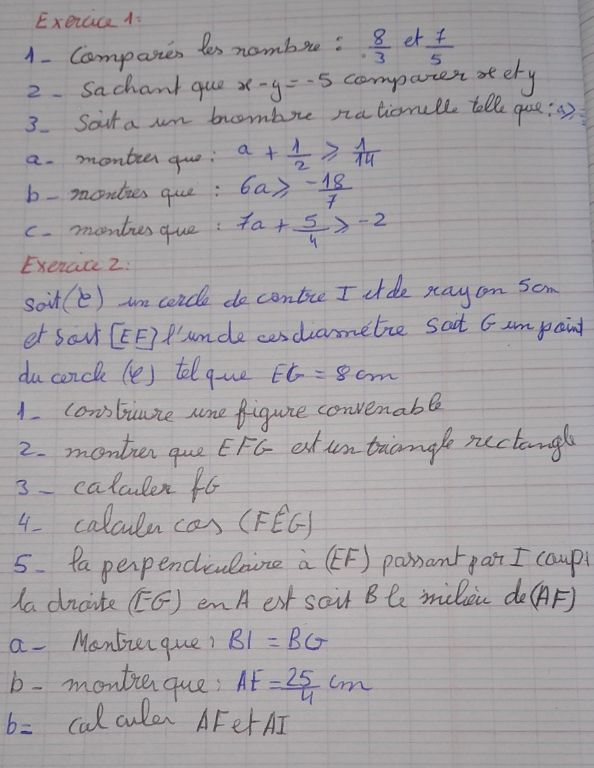 Exercice 1:
1- Comparés les nombre : 8/3 et 7/5
2 - Sachant que x-y=-5 comparer x et y
3 - Soit a un nombre rationelle telle que :
a- montrer que : a + 1/2 ≥ 1/14
b- montres que : 6a ≥ -18/7
c- montres que : 7a + 5/4 ≥ -2
Exercice 2:
soit (C) un cercle de centre I et de rayon 5cm
et soit [EF] l'un de ces diamétre Soit G un point
du cercle (C) tel que EG = 8 cm
1- construire une figure convenable
2- montrer que EFG est un triangle rectangle
3 - calculer fG
4- calculer cos (FÊG)
5- la perpendiculaire à (EF) passant par I coup
la droite (EG) en A est soit B le milieu de (AF)
a- Montrer que : BI = BG
b- montrer que : AE = 25/4 cm
b= calculer AF et AI